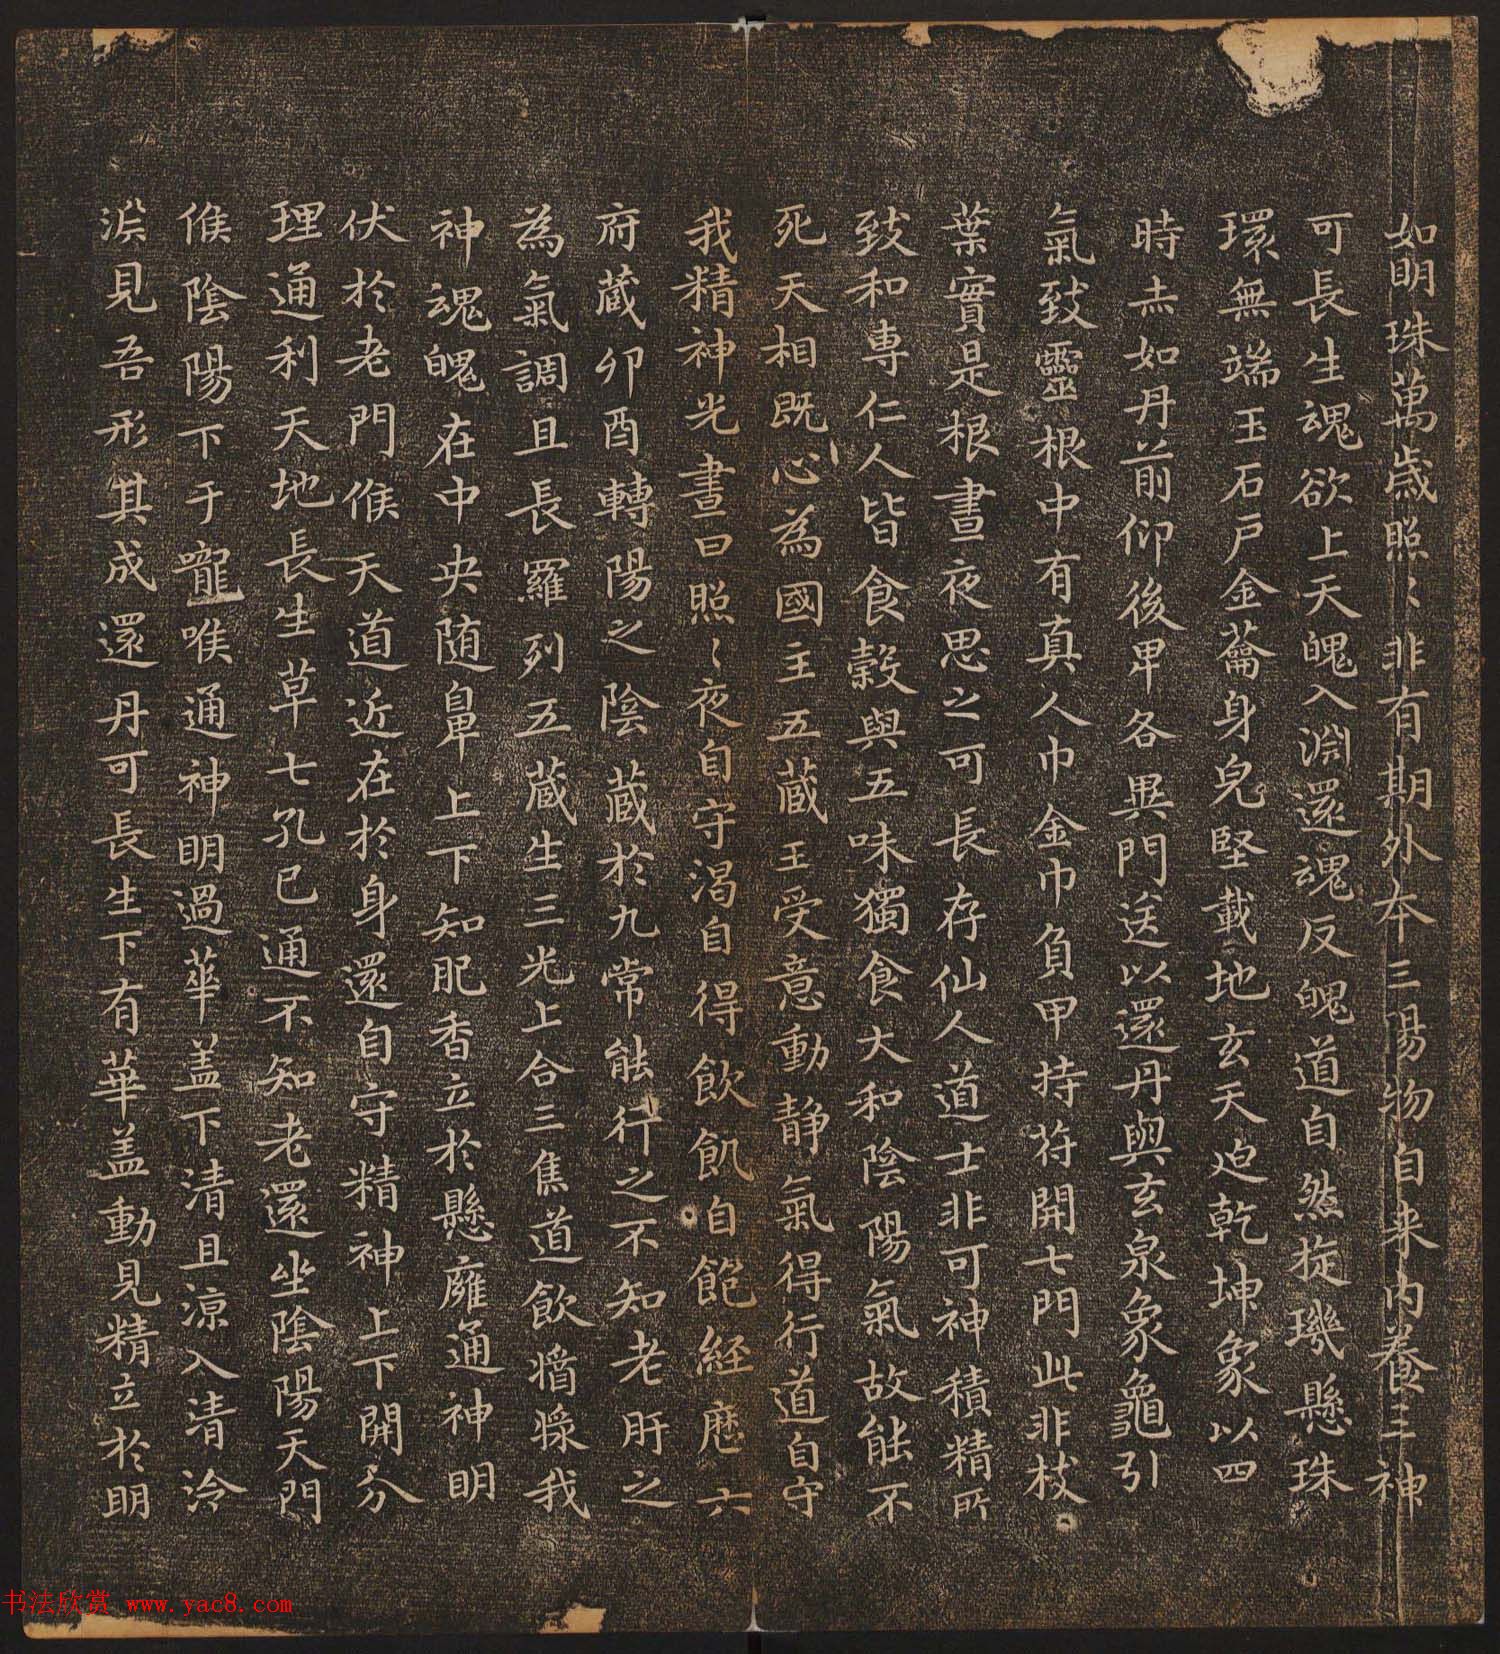 如明珠萬歲照〻非有期外本三陽物自来内養三神
可長生魂欲上天魄入淵還魂反魄道自然㨀璣懸珠
環無端玉石戶金籥身皃堅載地玄天迫乾坤象以四
時赤如丹前仰後卑各異門送以還丹與玄泉象龜引
氣致靈根中有真人巾金巾負甲持符開七門此非枝
葉實是根晝夜思之可長存仙人道士非可神積精所
致和專仁人皆食穀與五味獨食大和陰陽氣故能不
死天相既心為國主五蔵王受意動静氣得行道自守
我精神光晝日照〻夜自守渴自得飲飢自飽經歷六
府蔵卯酉轉陽之陰蔵於九常能行之不知老肝之
為氣調且長羅列五蔵生三光上合三焦道飲漿我
神魂魄在中央随鼻上下知肥香立於懸癰通神明
伏於老門候天道近在於身還自守精神上下開分
理通利天地長生草七孔已通不知老還坐陰陽天門
候陰陽下于嚨喉通神明過華盖下清且涼入清泠
淵見吾形其成還丹可長生下有華盖動見精立於明
书法欣赏 www.yac8.com